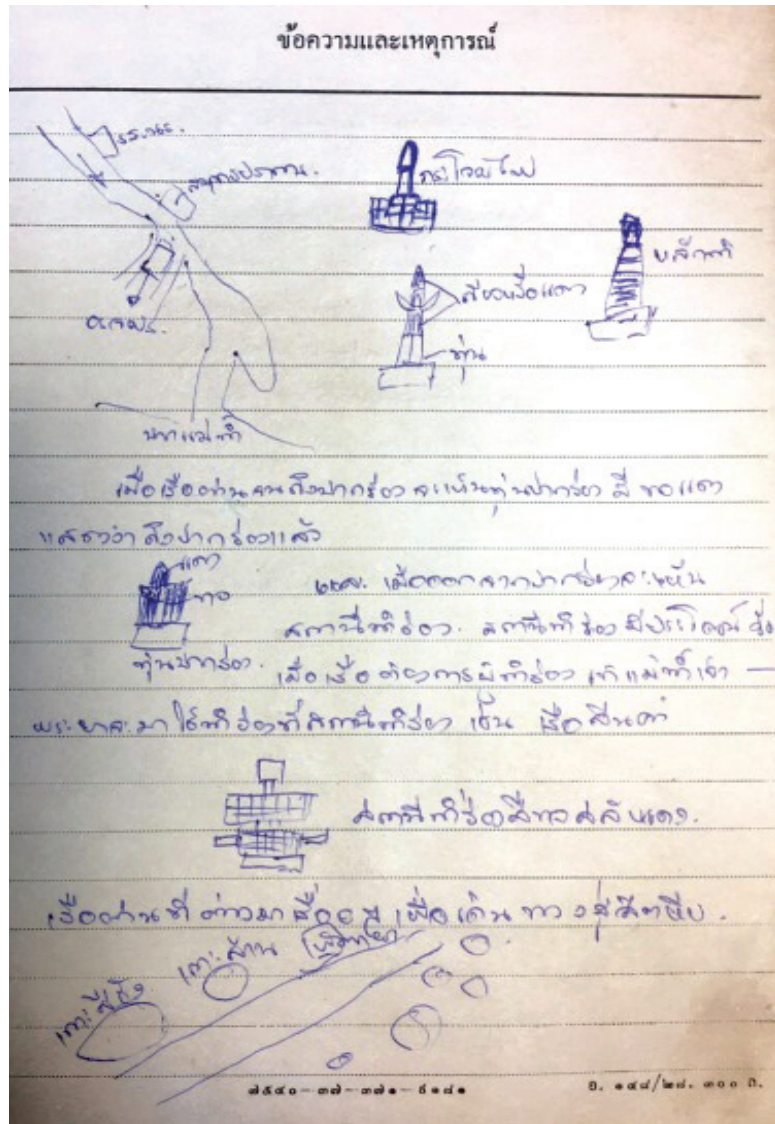 ข้อความและเหตุการณ์
รร.นรร.
สมุทรปราการ.
กระโจมไฟ
หลักนำ
เขียวหรือแดง
ทุ่น
ปากแม่น้ำ
เมื่อเรือผ่านจนถึงปากร่อง จะเห็นทุ่นปากร่อง มี ขาวแดง
แสดงว่า ถึงปากร่องแล้ว
แดง
ขาว
ทุ่นปากร่อง.
เมื่อออกจากปากร่องจะเห็น
สถานีนำร่อง. สถานีนำร่อง มีประโยชน์ คือ
เมื่อเรือ ต้องการผู้นำร่อง เข้าแม่น้ำเจ้า —
พระยาจะมาใช้นำร่องที่สถานีนำร่อง เช่น เรือสินค้า
สถานีนำร่องสีขาวสลับแดง.
เรือผ่านที่ต่างๆมาเรื่อยๆ เพื่อเดินทางสู่สัตหีบ.
เกาะสีชัง
เกาะล้าน
พัทยา
๗๕๔๐-๓๗-๓๗๑-๕๑๘๑
อ. ๑๔๘/๒๘. ๓๐๐ ถ.